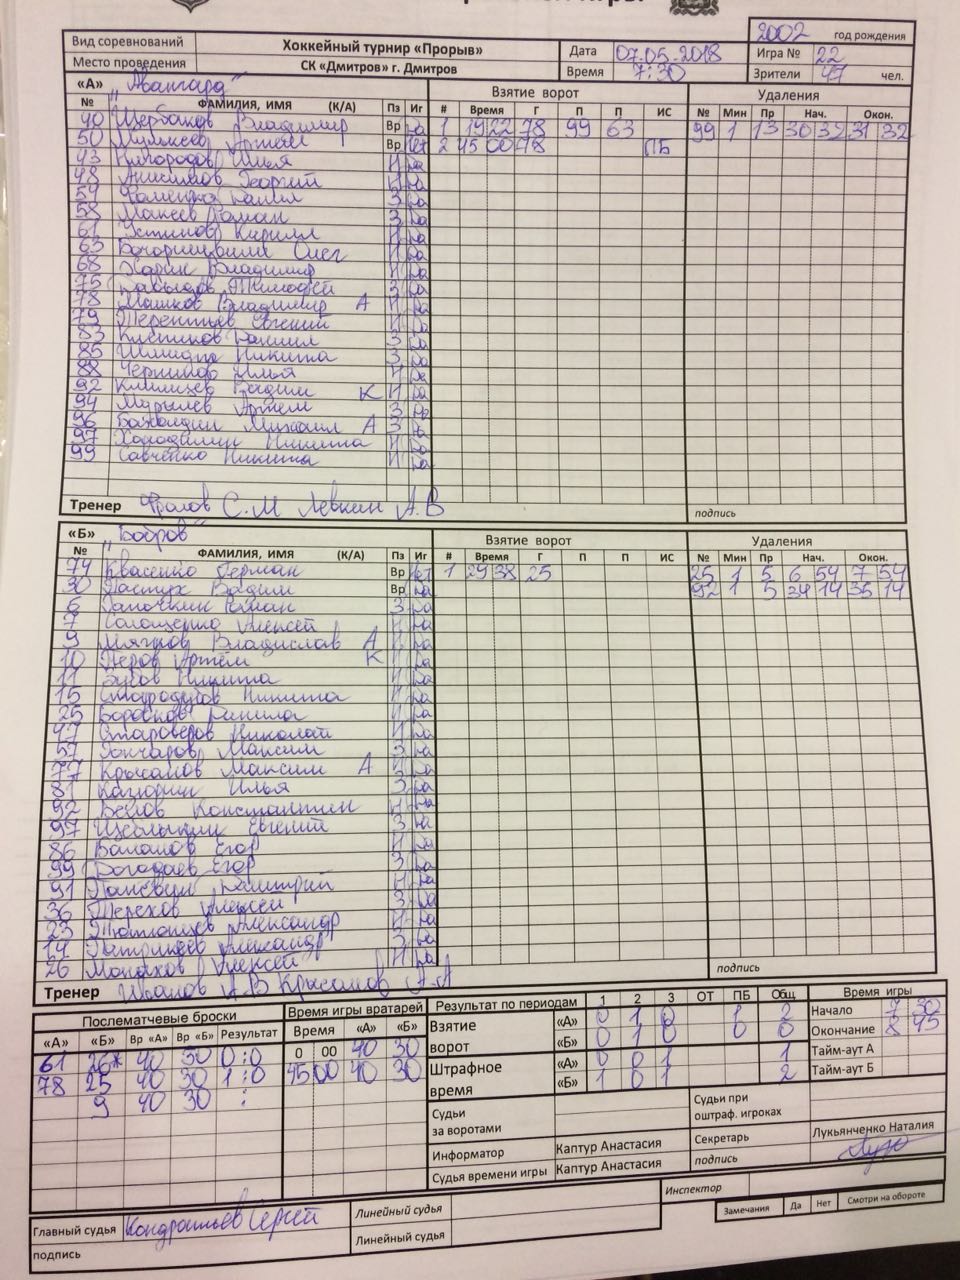 2002 год рождения
Вид соревнований Хоккейный турнир «Прорыв» Дата 07.05.2018 Игра № 22
Место проведения СК «Дмитров» г. Дмитров Время 7:30 Зрители 47 чел.
«А» "Авангард" Взятие ворот Удаления
№ ФАМИЛИЯ, ИМЯ (К/А) Пз Иг # Время Г П П ИС № Мин Пр Нач. Окон.
40 Щербаков Владимир Вр да 1 19 22 78 99 63 99 1 13 30 32 31 32
50 Мулькеев Артём Вр Нет 2 45 00 78 ПБ
43 Нимородов Илья Н да
48 Анисимов Георгий Н да
54 Фоменко Данил З да
58 Макеев Роман З да
61 Устинов Кирилл Н да
63 Бочоришвили Олег Н да
68 Харин Владимир Н да
75 Давыдов Тимофей З да
78 Машков Владимир А Н да
79 Терентьев Евгений Н да
83 Даниил З да
85 Шмидт Никита З да
88 Илья Н да
92 Климцев Вадим К Н да
94 Мурылев Артём З да
96 Михаил А З да
97 Никита Н да
99 Савченко Никита Н да
Тренер Фролов С.М Левкин А.В
подпись
«Б» "Бобров" Взятие ворот Удаления
№ ФАМИЛИЯ, ИМЯ (К/А) Пз Иг # Время Г П П ИС № Мин Пр Нач. Окон.
74 Квасенко Герман Вр Нет 1 29 38 25 25 1 5 6 54 7 54
30 Пастух Вадим Вр да 92 1 5 34 14 35 14
6 Гапочкин Роман З да
7 Салащенко Алексей Н да
9 Мягков Владислав А Н да
10 Перов Артём К Н да
11 Зубов Никита Н да
15 Стародубов Никита Н да
25 Боровков Данила Н да
47 Староверов Николай Н да
57 Гончаров Максим З да
77 Крысанов Максим А Н да
81 Кацюрин Илья З да
92 Белов Константин Н да
97 Щеблыкин Евгений З да
86 Балашов Егор Н да
99 Богодаев Егор З да
91 Дмитрий Н да
36 Терехов Алексей З да
23 Александр Н да
14 Патрикеев Александр З да
26 Монахов Алексей Н да
Тренер Иванов А.В Крысанов А.А
подпись
Послематчевые броски Время игры вратарей Результат по периодам 1 2 3 ОТ ПБ Общ Время игры
«А» «Б» Вр «А» Вр «Б» Результат Время «А» «Б» Взятие ворот «А» 0 1 0 1 2 Начало 7 30
«Б» 0 1 0 0 0 Окончание 8 45
61 26* 40 30 0:0 0 00 40 30 Штрафное время «А» 0 0 1 1 Тайм-аут А
78 25 40 30 1:0 45 00 40 30 «Б» 1 0 1 2 Тайм-аут Б
9 40 30 :
Судьи за воротами Судьи при оштраф. игроках
Информатор Каптур Анастасия Секретарь Лукьянченко Наталия
Судья времени игры Каптур Анастасия подпись
Инспектор
Главный судья Кондратьев Сергей Линейный судья Замечания Да Нет Смотри на обороте
подпись Линейный судья